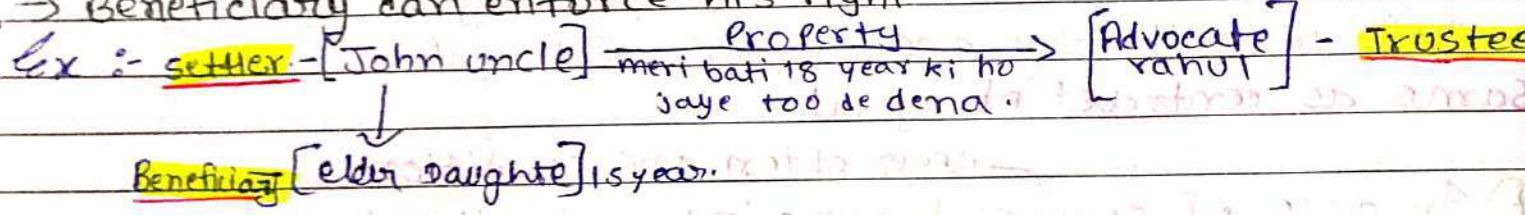 → Beneficiary can enforce his right
Ex :- settler - [John uncle] Property → [Advocate rahul] - Trustee
meri bati 18 year ki ho
jaye too de dena.
Beneficiary [elder Daughte] 15 year.